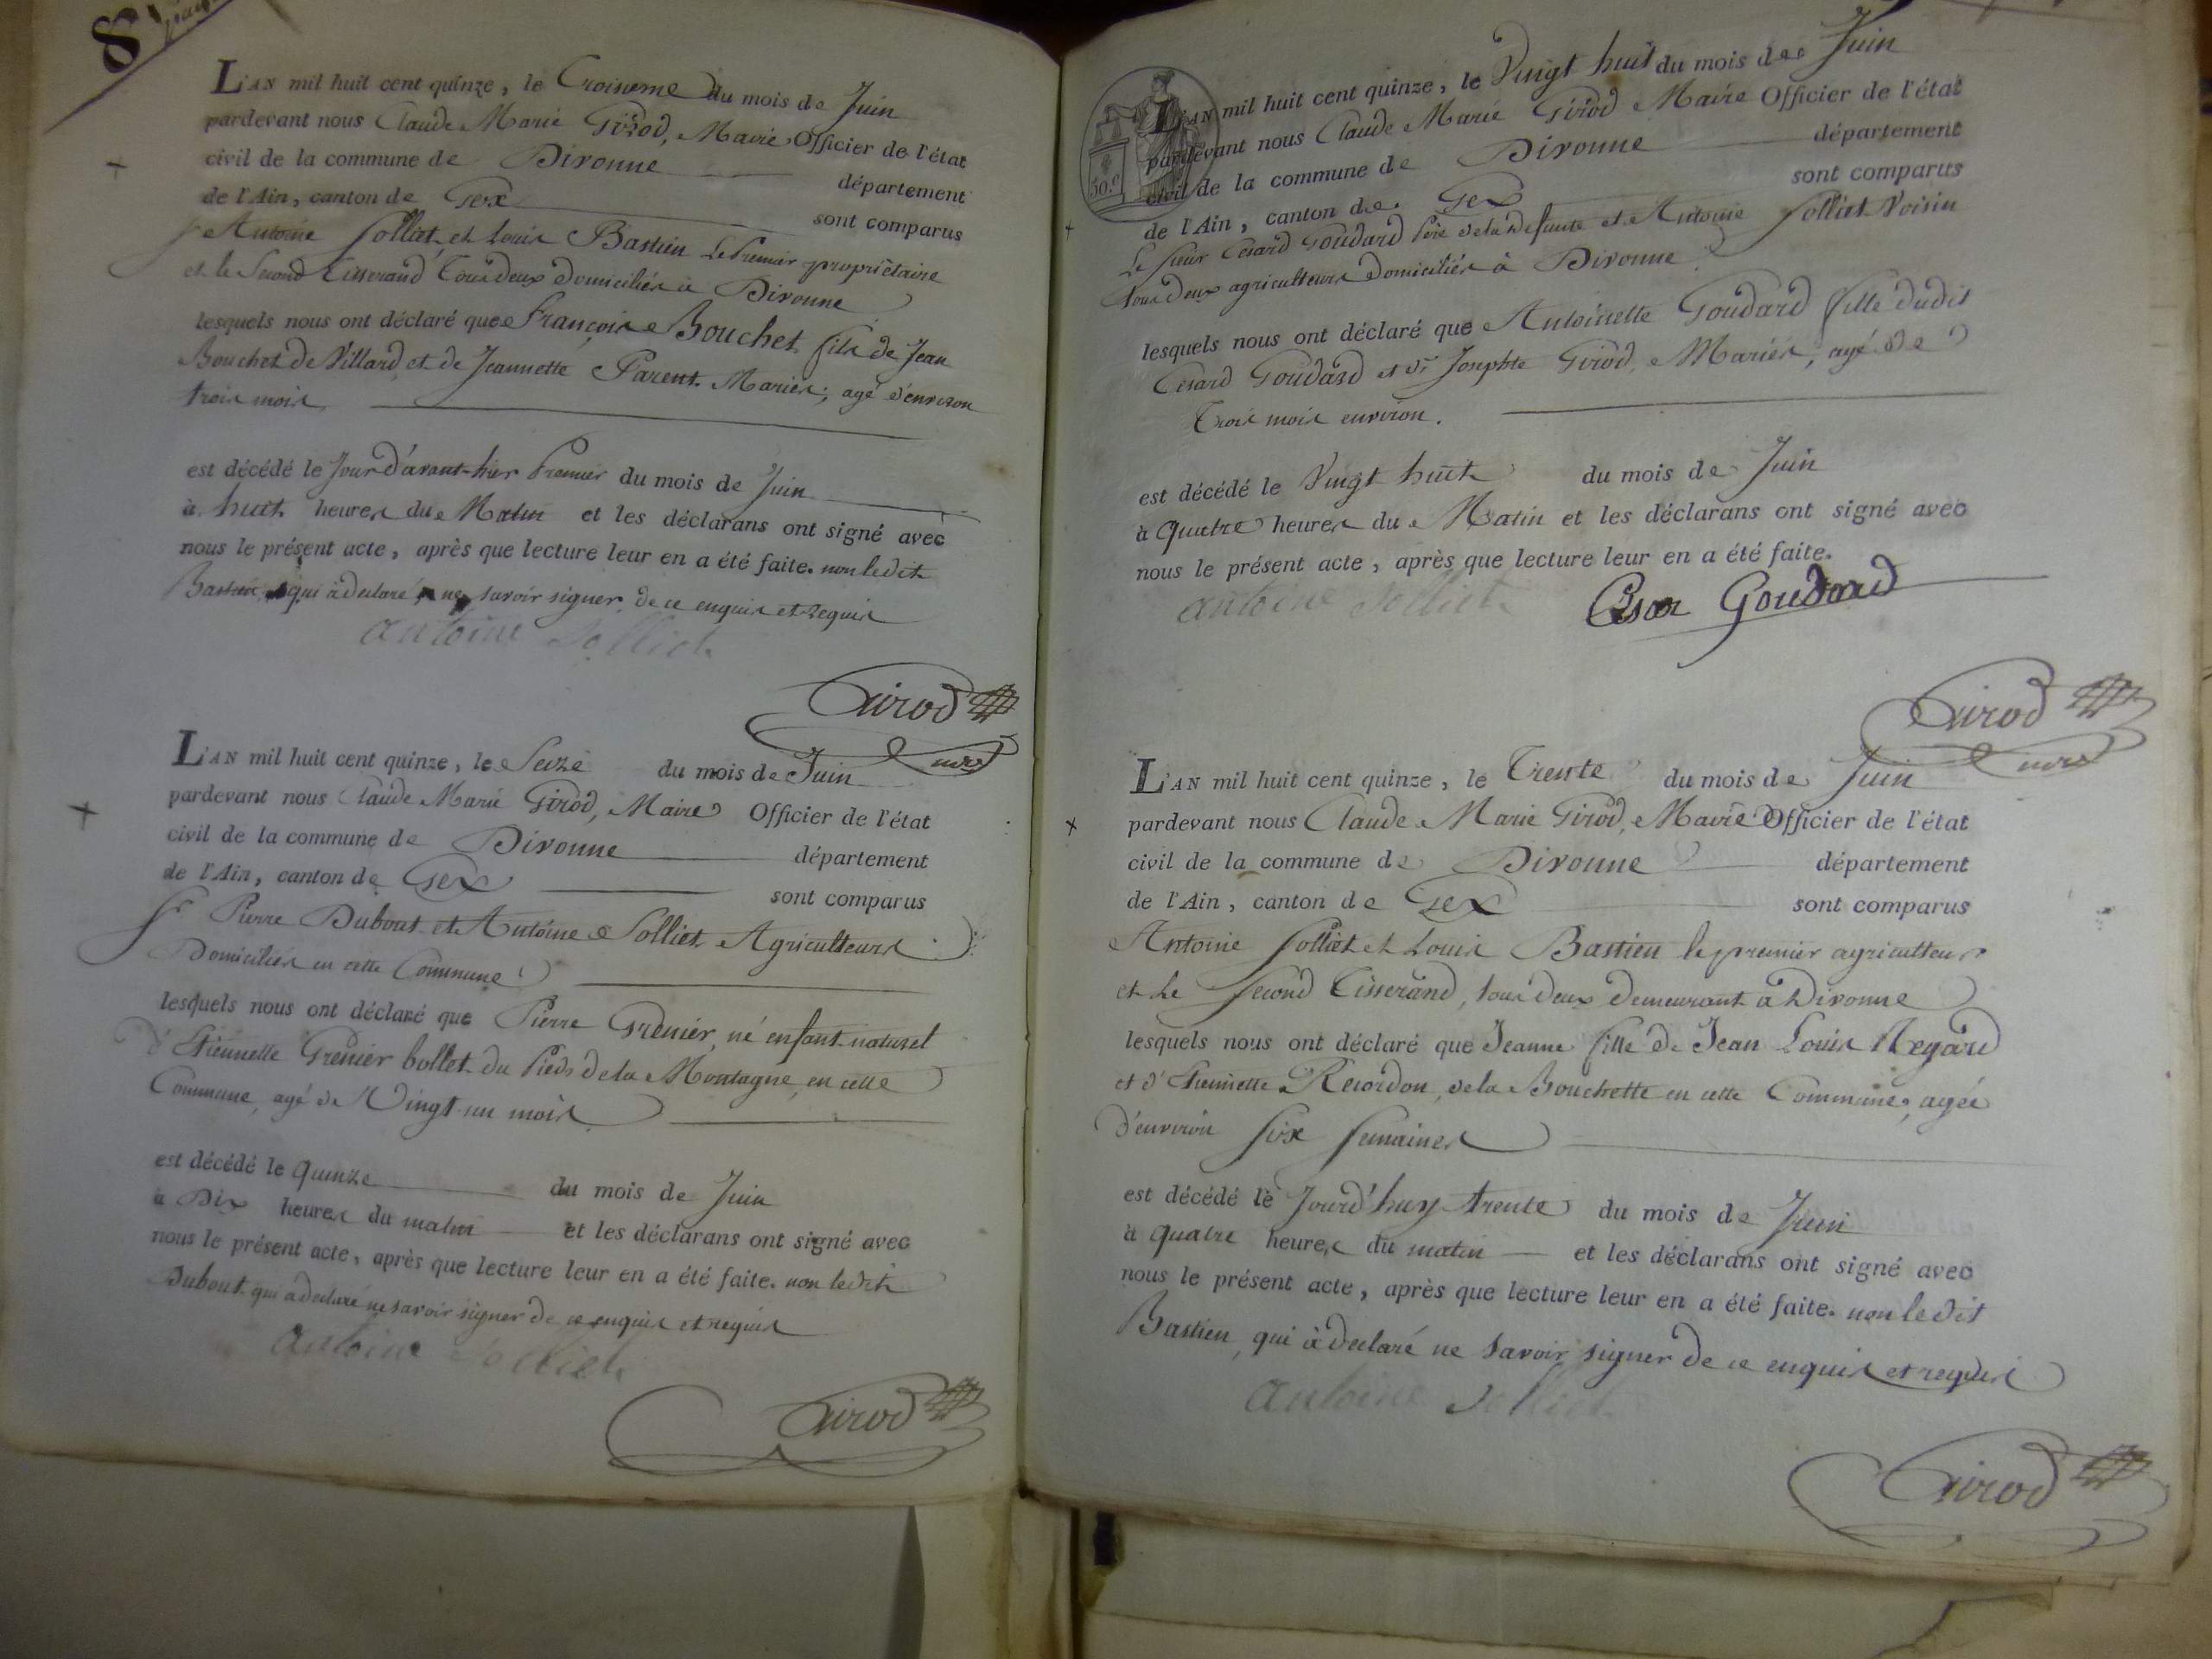 8
L'AN mil huit cent quinze, le Troisieme du mois de Juin
pardevant nous Claude Marie Girod, Maire Officier de l'état
civil de la commune de Divonne département
de l'Ain, canton de Gex sont comparus
Sr Antoine Solliet et Louis Bastien Le Premier propriètaire
et le Second Tisserand Tous deux domiciliés à Divonne
lesquels nous ont déclaré que François Bouchet fils de Jean
Bouchet de Villard et de Jeannette Parent Mariés; agé d'environ
trois mois
est décédé le Jour d'avant-hier Premier du mois de Juin
à huit heures du Matin et les déclarans ont signé avec
nous le présent acte, après que lecture leur en a été faite. non ledit
Bastien qui à declaré ne savoir signer de ce enquis et requis
antoine Solliet
Girod
mre
L'AN mil huit cent quinze, le Seize du mois de Juin
pardevant nous Claude Marie Girod, Maire Officier de l'état
civil de la commune de Divonne département
de l'Ain, canton de Gex sont comparus
Sr Pierre Dubout et Antoine Solliet Agriculteurs
Domiciliés en cette Commune
lesquels nous ont déclaré que Pierre Grenier, né enfant naturel
d'Etiennette Grenier bollet du Pieds de la Montagne en cette
Commune, agé de Vingt un mois
est décédé le quinze du mois de Juin
à Dix heures du matin et les déclarans ont signé avec
nous le présent acte, après que lecture leur en a été faite. non ledit
Dubout qui à declaré ne savoir signer de ce enquis et requis
antoine Solliet
Girod
30.c
L'AN mil huit cent quinze, le Vingt huit du mois de Juin
pardevant nous Claude Marie Girod Maire Officier de l'état
civil de la commune de Divonne département
de l'Ain, canton de Gex sont comparus
Le Sieur Cesard Goudard Père de la defunte et Antoine Solliet Voisin
tous deux agriculteurs domiciliés à Divonne
lesquels nous ont déclaré que Antoinette Goudard fille dudit
Cesard Goudard et de Josephte Girod, Mariés, agé de
Trois mois environ.
est décédé le Vingt huit du mois de Juin
à Quatre heures du Matin et les déclarans ont signé avec
nous le présent acte, après que lecture leur en a été faite.
antoine Solliet Cesar Goudard
Girod
mre
L'AN mil huit cent quinze, le Trente du mois de Juin
pardevant nous Claude Marie Girod, Maire Officier de l'état
civil de la commune de Divonne département
de l'Ain, canton de Gex sont comparus
Antoine Solliet et Louis Bastien le premier agriculteur
et Le Second Tisserand, tous deux demeurant à Divonne
lesquels nous ont déclaré que Jeanne fille de Jean Louis Regard
et d'Etiennette Recordon, de la Bouchette en cette Commune, agée
d'environ Six Semaines
est décédé le Jourd'huy trente du mois de Juin
à quatre heures du matin et les déclarans ont signé avec
nous le présent acte, après que lecture leur en a été faite. non le dit
Bastien, qui à declaré ne savoir signer de ce enquis et requis
antoine Solliet
Girod